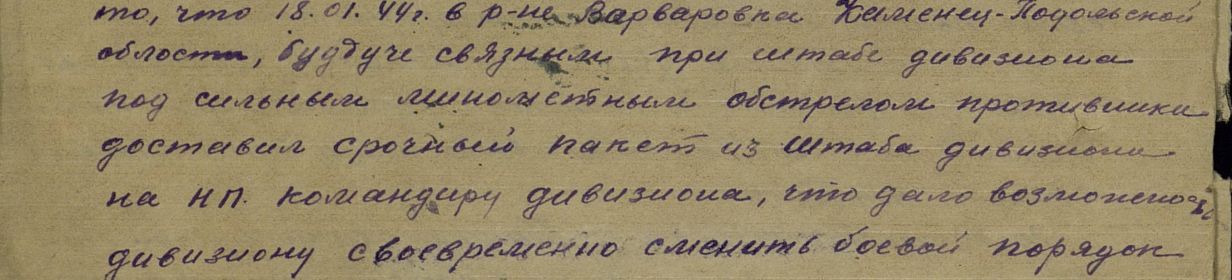 то, что 18.01.44г. в р-не Варваровка Каменец-Подольской
области, будуче связным при штабе дивизиона
под сильным минометным обстрелом противника
доставил срочный пакет из штаба дивизиона
на НП. командиру дивизиона, что дало возможность
дивизиону своевременно сменить боевой порядок